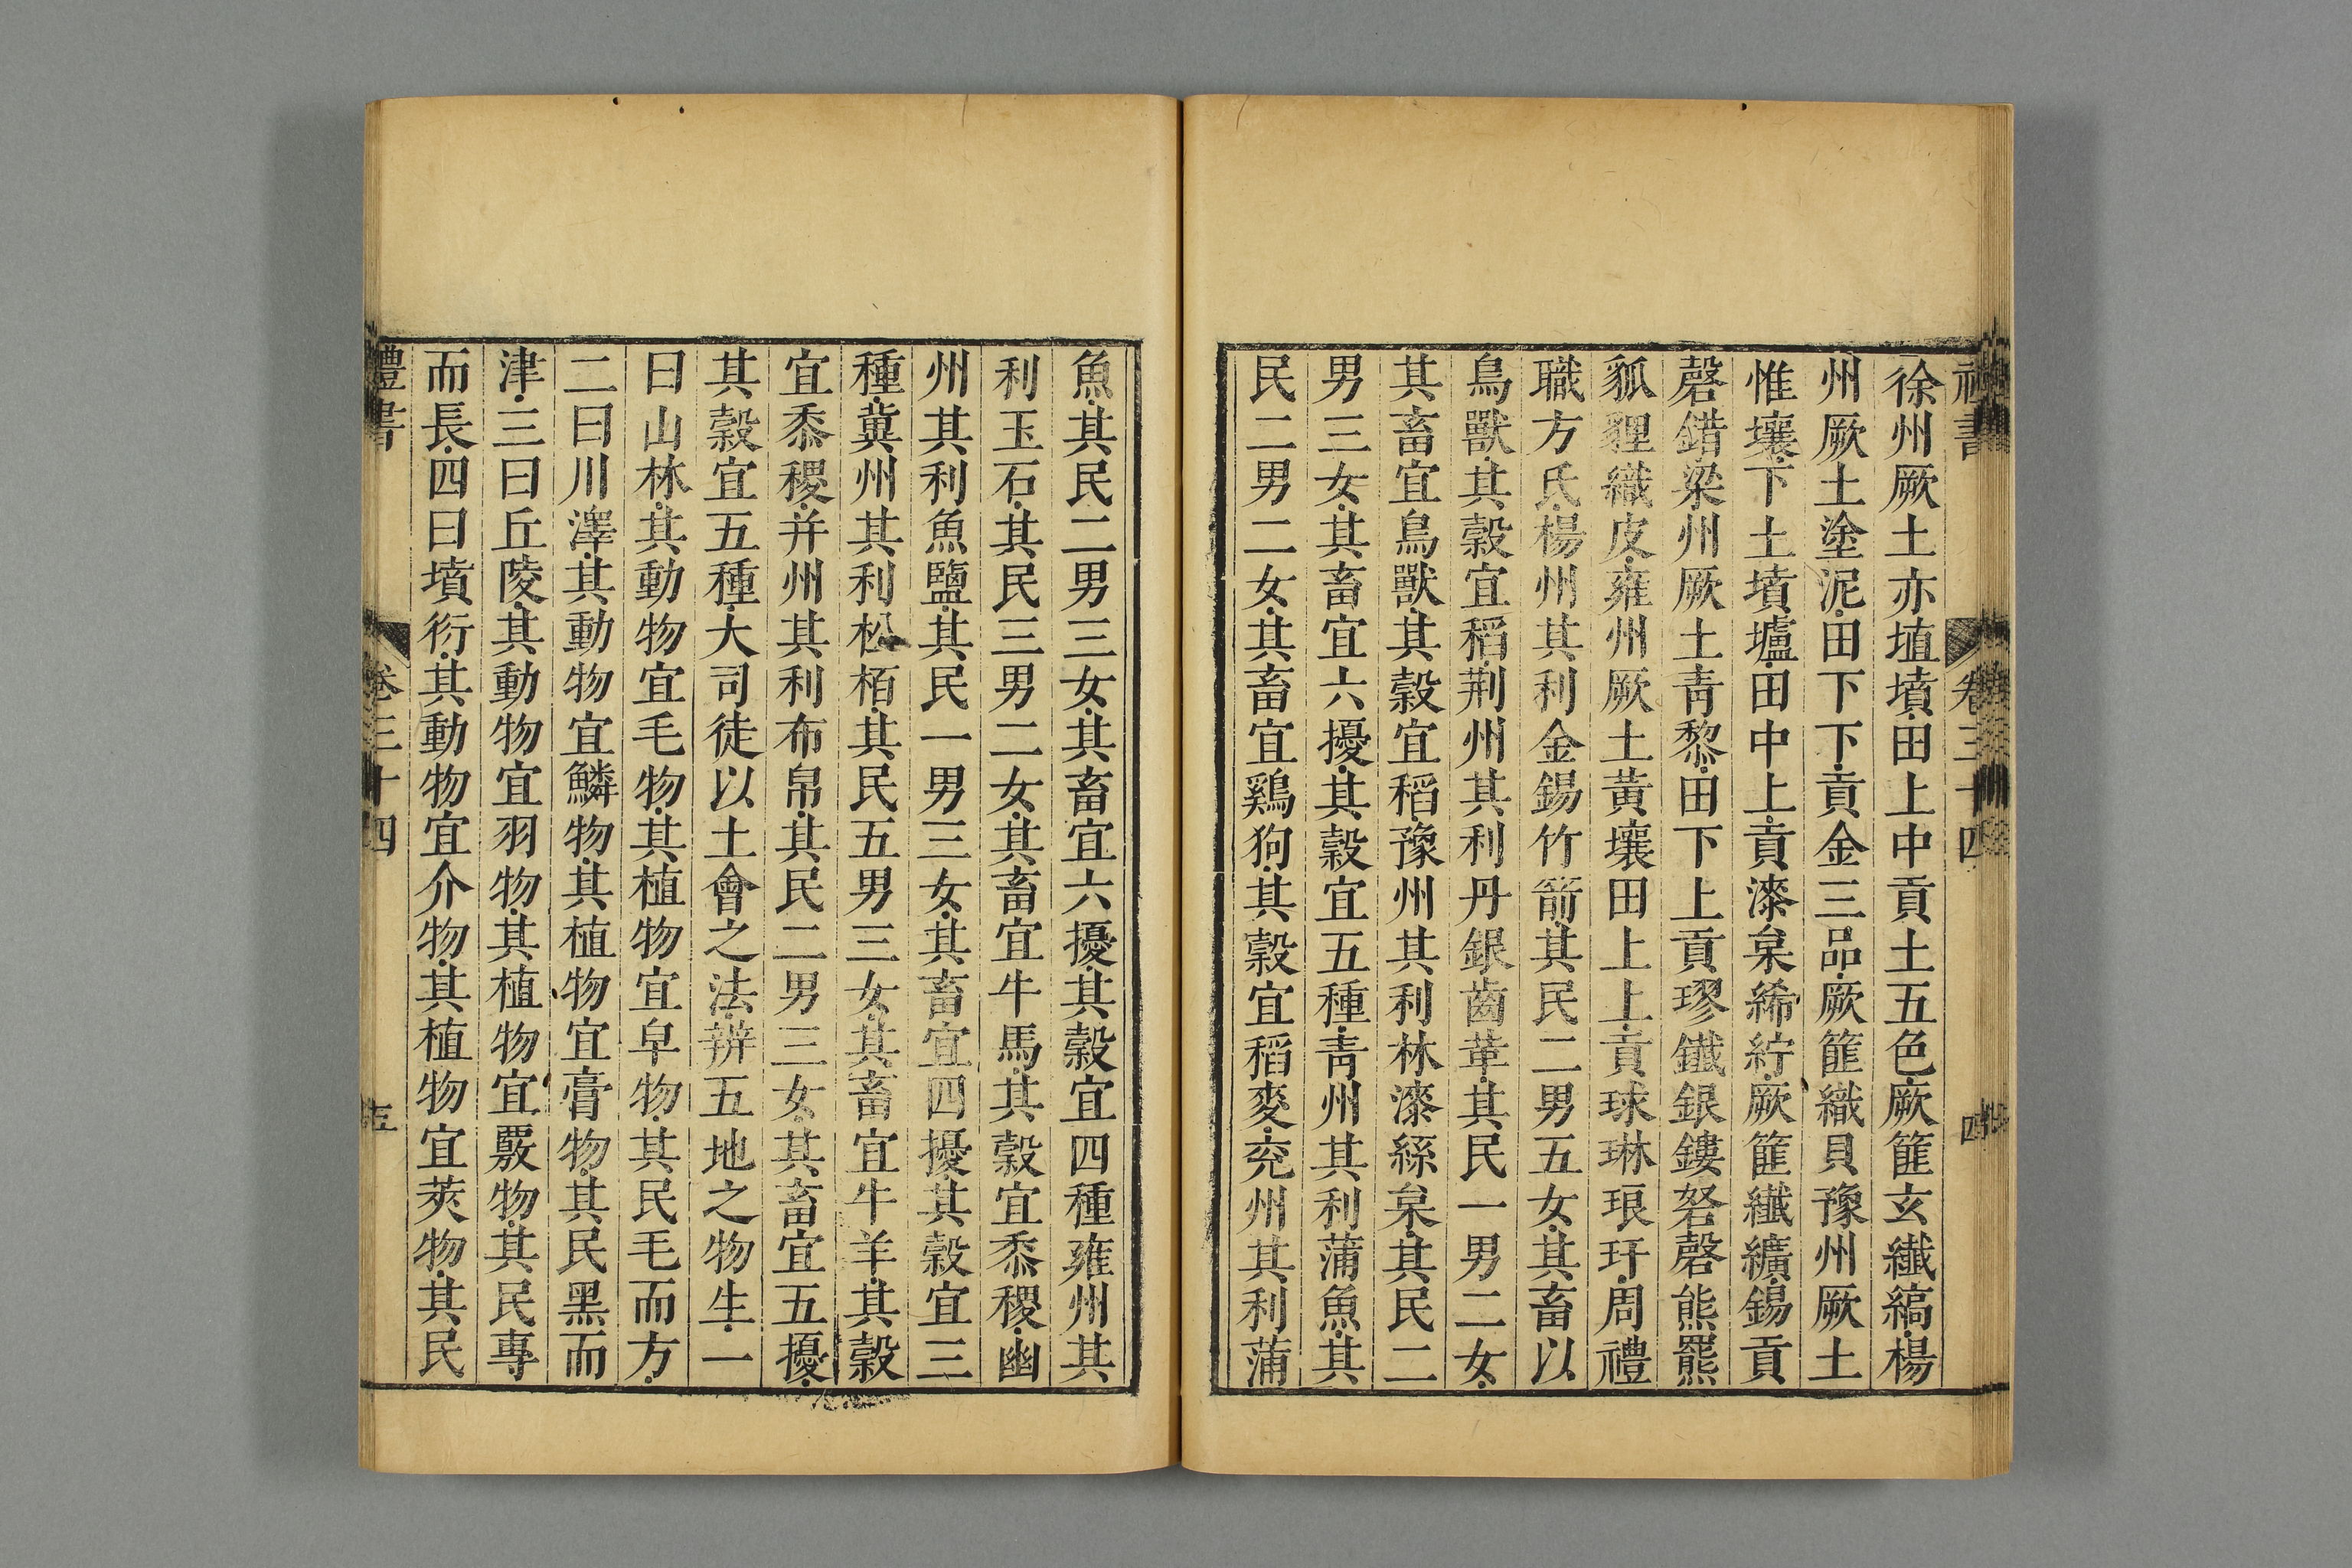 徐州厥土亦埴墳田上中貢土五色厥篚玄纖縞楊
州厥土塗泥田下下貢金三品厥篚織貝豫州厥土
惟壤下土墳壚田中上貢漆枲絺紵厥篚纖纊錫貢
磬錯梁州厥土青黎田下上貢璆鐵銀鏤砮磬熊羆
狐貍織皮雍州厥土黃壤田上上貢球琳琅玕周禮
職方氏楊州其利金錫竹箭其民二男五女其畜以
鳥獸其穀宜稻荆州其利丹銀齒革其民一男二女
其畜宜鳥獸其穀宜稻豫州其利林漆絲枲其民二
男三女其畜宜六擾其穀宜五種青州其利蒲魚其
民二男二女其畜宜鷄狗其穀宜稻麥兖州其利蒲
魚其民二男三女其畜宜六擾其穀宜四種雍州其
利玉石其民三男二女其畜宜牛馬其穀宜黍稷幽
州其利魚鹽其民一男三女其畜宜四擾其穀宜三
種冀州其利松栢其民五男三女其畜宜牛羊其穀
宜黍稷并州其利布帛其民二男三女其畜宜五擾
其穀宜五種大司徒以土會之法辨五地之物生一
曰山林其動物宜毛物其植物宜皁物其民毛而方
二曰川澤其動物宜鱗物其植物宜膏物其民黑而
津三曰丘陵其動物宜羽物其植物宜覈物其民專
而長四曰墳衍其動物宜介物其植物宜莢物其民
禮書 卷三十四 五